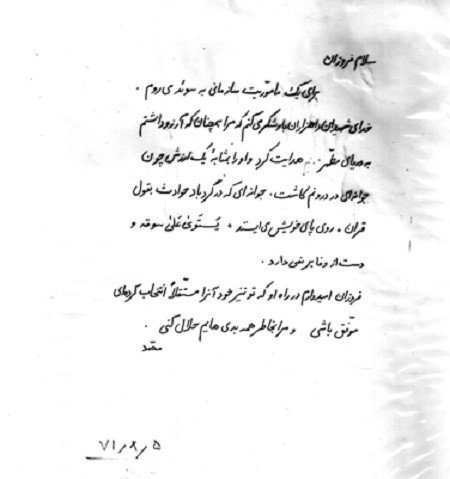 سلام فروزان
برای یک مأموریت سازمانی به سوئد می روم.
خدای شهیدان را هزاران بار شکر می کنم که مرا همچنان که آرزو داشتم
به دریای مطهر ... هدایت کرد و او را بمثابهٔ یک ارزش چون
جوانه ای در درونم کاشت. جوانه ای که در گردباد حوادث بقول
قرآن، روی پای خویش می ایستد، یستوی علی سوقه و
دست از وفا بر نمی دارد.
فروزان امیدوارم در راه او که تو نیز خود آنرا مستقلاً انتخاب کرده ای
موفق باشی و مرا بخاطر همه بدی هایم حلال کنی.
۵ر۸ر۷۱